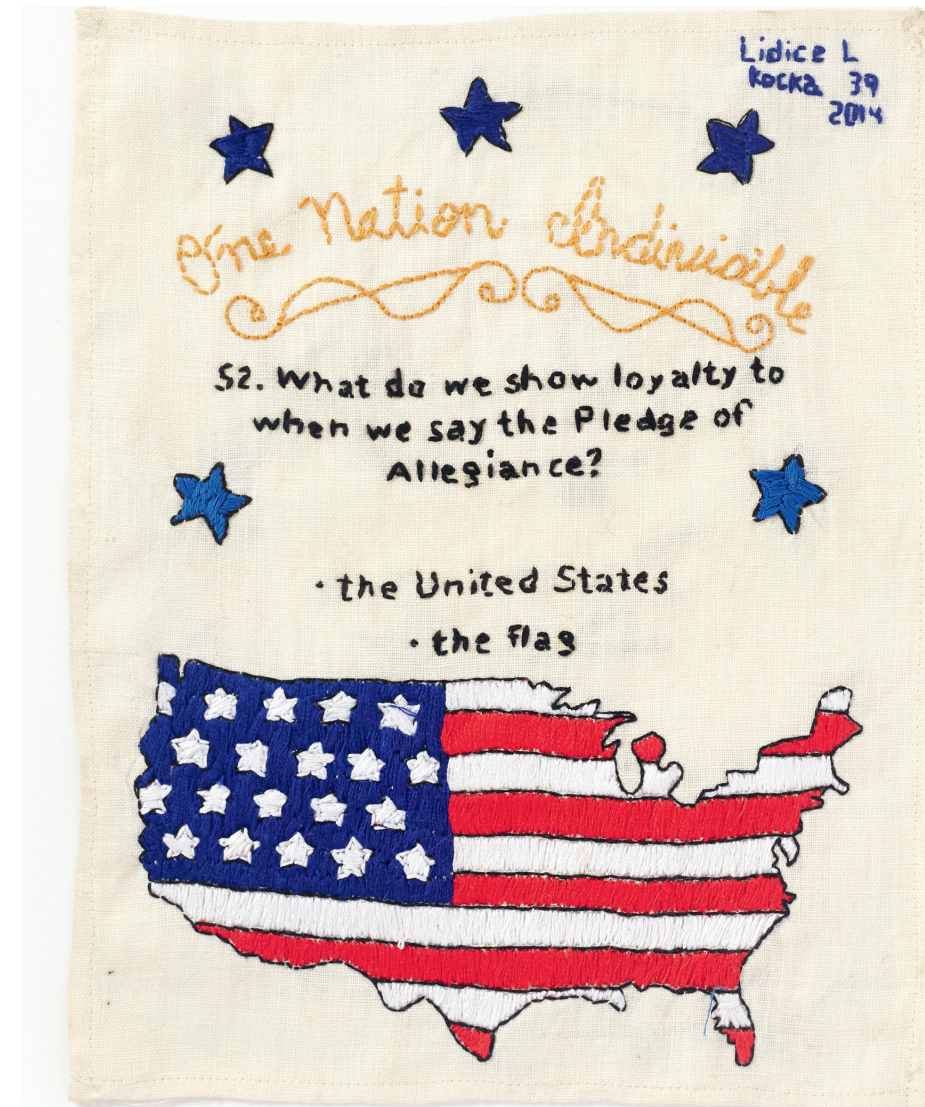 Lidice L
Kocka 39
2014
One Nation Indivisible
52. What do we show loyalty to
when we say the Pledge of
Allegiance?
· the United States
· the flag